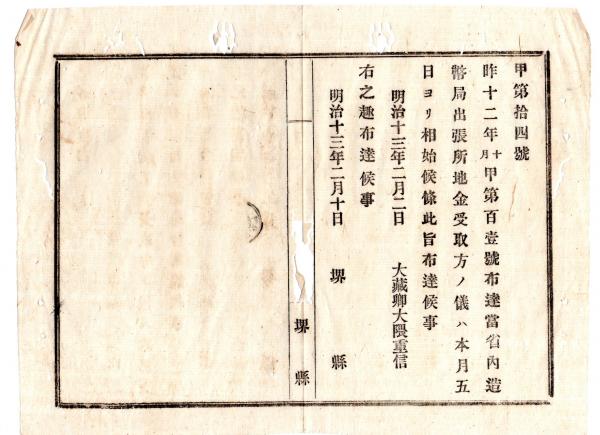 甲第拾四號
昨十二年十月甲第百壹號布達當省內造
幣局出張所地金受取方ノ儀ハ本月五
日ヨリ相始候條此旨布達候事
明治十三年二月二日　大藏卿大隈重信
右之趣布達候事
明治十三年二月十日　堺縣
堺縣